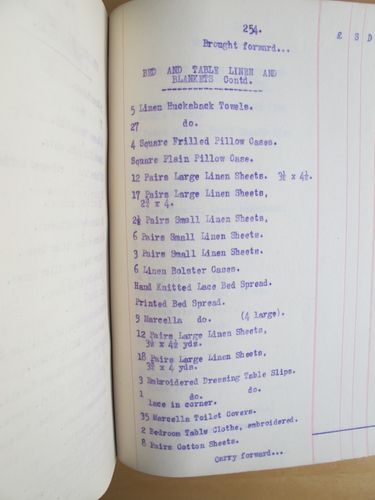 254.
£ S D
Brought forward...
BED AND TABLE LINEN AND
BLANKETS Contd.
5 Linen Huckaback Towels.
27 do.
4 Square Frilled Pillow Cases.
Square Plain Pillow Case.
12 Pairs Large Linen Sheets. 3½ x 4½.
17 Pairs Large Linen Sheets,
x 4.
2½ Pairs Small Linen Sheets,
6 Pairs Small Linen Sheets.
3 Pairs Small Linen Sheets.
6 Linen Bolster Cases.
Hand Knitted Lace Bed Spread.
Printed Bed Spread.
9 Marcella do. (4 large).
12 Pairs Large Linen Sheets,
3½ x 4½ yds.
18 Pairs Large Linen Sheets,
x 4 yds.
3 Embroidered Dressing Table Slips.
1 do. do.
lace in corner.
35 Marcella Toilet Covers.
2 Bedroom Table Cloths, embroidered.
8 Pairs Cotton Sheets.
Carry forward...